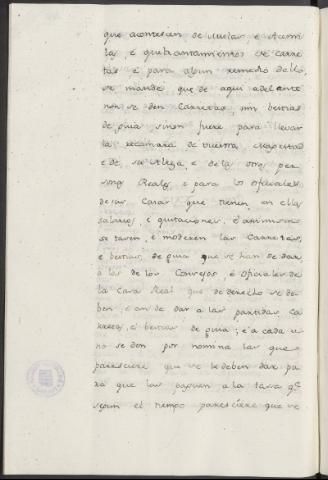 que acontescen de Mulas, e Acemi
las, e quebrantamientos de carre
tas, e para algun remedio dello,
se mande que de aqui adelante
non se den Carretas, nin bestias
de guia, sinon fuere para llevar
la recamara de vuestra Magestad
e de su Alteza e de las otras per
sonas Reales, e para los oficiales
de sus Casas que tienen en ellas
salarios, e quitaciones; e asimismo
se tasen, e moderen las Carretas,
e bestias de guia que se han de dar
a los de los Consejos, e oficiales de
la Casa Real que de derecho se de
ben, e an de dar a las partidas Ca
rretas, e bestias de guia; e a cada u
no se den por nomina las que
paresciere que se le deben dar pa
ra que las paguen a la tasa qe
segun el tiempo paresciere que se